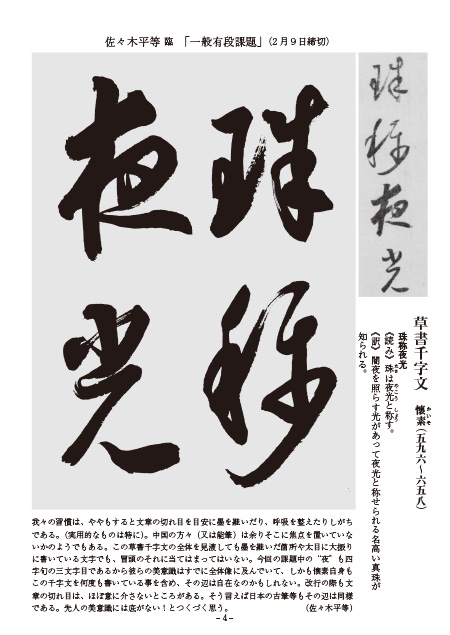 佐々木平等 臨 「一般有段課題」(2月9日締切)
珠称
夜光
珠称夜光
草書千字文 懐素(五九六〜六五八)
かいそ
珠称夜光
《読み》珠は夜光と称す。
たま やこう しょう
《訳》闇夜を照らす光があって夜光と称せられる名高い真珠が
知られる。
我々の習慣は、ややもすると文章の切れ目を目安に墨を継いだり、呼吸を整えたりしがち
である。(実用的なものは特に)。中国の方々(又は能筆)は余りそこに焦点を置いていな
いかのようでもある。この草書千字文の全体を見渡しても墨を継いだ箇所や太目に大振り
に書いている文字でも、冒頭のそれに当てはまってはいない。今回の課題中の“夜”も四
字句の三文字目であるから彼らの美意識はすでに全体像に及んでいて、しかも懐素自身も
この千字文を何度も書いている事を含め、その辺は自在なのかもしれない。改行の際も文
章の切れ目は、ほぼ意に介さないところがある。そう言えば日本の古筆等もその辺は同様
である。先人の美意識には底がない!とつくづく思う。 (佐々木平等)
- 4 -